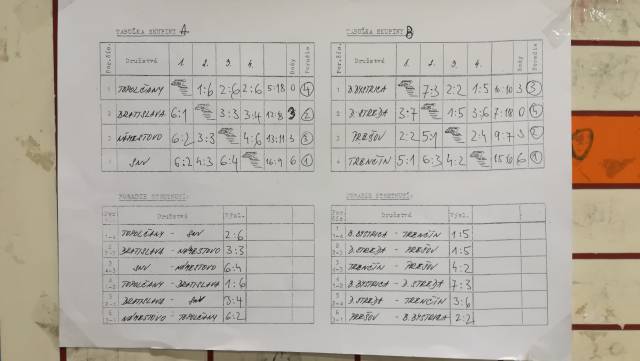 TABUĽKA SKUPINY A
Por.čís. Družstvá 1. 2. 3. 4. Body Poradie
1 TOPOLČANY 1:6 2:6 2:6 5:18 0 4
BRATISLAVA 6:1 3:3 3:4 12:8 3 2
NÁMESTOVO 6:2 3:3 4:6 13:11 3 3
SNV 6:2 4:3 6:4 16:9 6 1
TABUĽKA SKUPINY B
Por.čís. Družstvá 1. 2. 3. 4. Body Poradie
B.BYSTRICA 7:3 2:2 1:5 10:10 3 3
D.STREDA 3:7 1:5 3:6 7:18 0 4
PREŠOV 2:2 5:1 2:4 9:7 3 2
TRENČÍN 5:1 6:3 4:2 15:6 6 1
PORADIE STRETNUTÍ:
Družstvá Výsl.
TOPOLČANY - SNV 2:6
BRATISLAVA - NÁMESTOVO 3:3
SNV - NÁMESTOVO 6:4
TOPOLČANY - BRATISLAVA 1:6
BRATISLAVA - SNV 3:4
NÁMESTOVO - TOPOLČANY 6:2
PORADIE STRETNUTÍ:
Družstvá Výsl.
B.BYSTRICA - TRENČÍN 1:5
D.STREDA - PREŠOV 1:5
TRENČÍN - PREŠOV 4:2
B.BYSTRICA - D.STREDA 7:3
D.STREDA - TRENČÍN 3:6
PREŠOV - B.BYSTRICA 2:2